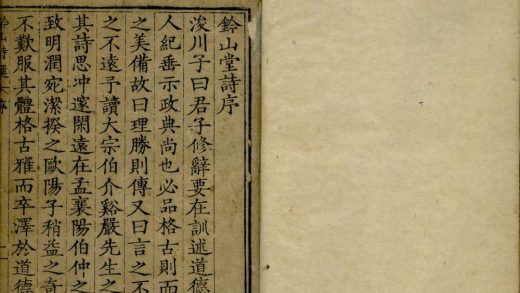 鈐山堂詩序
浚川子曰君子修辭要在訓述道德
人紀垂示政典尚也必品格古則而
之美備故曰理勝則傳又曰言之不
之不遠予讀大宗伯介谿嚴先生之
其詩思冲邃閑遠在孟襄陽伯仲之
致明潤宛潔揆之歐陽子稍益之奇
不歎服其體格古雅而卒澤於道德
鈐山詩選序